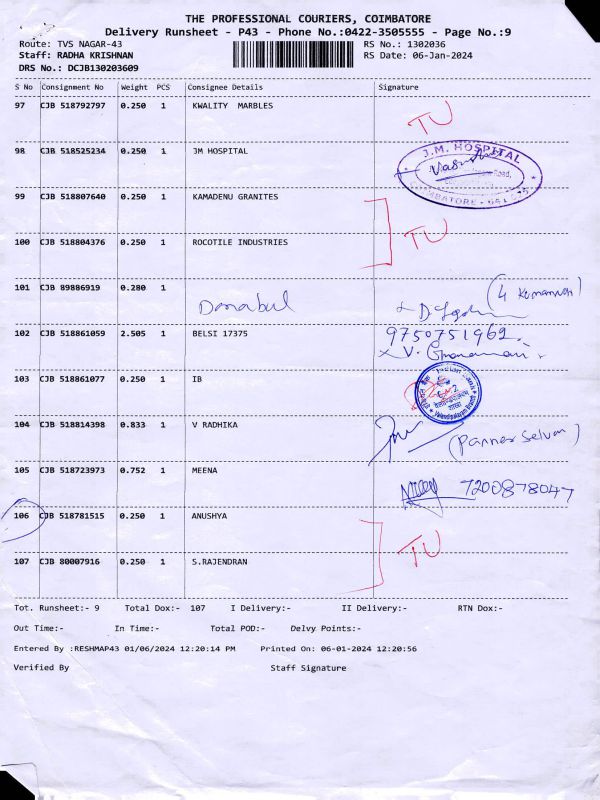 THE PROFESSIONAL COURIERS, COIMBATORE
Delivery Runsheet - P43 - Phone No.:0422-3505555 - Page No.:9
Route: TVS NAGAR-43 RS No.: 1302036
Staff: RADHA KRISHNAN RS Date: 06-Jan-2024
DRS No.: DCJB130203609
S No Consignment No Weight PCS Consignee Details Signature
97 CJB 518792797 0.250 1 KWALITY MARBLES
TU
98 CJB 518525234 0.250 1 JM HOSPITAL
J.M. HOSPITAL
COIMBATORE
99 CJB 518807640 0.250 1 KAMADENU GRANITES
TU
100 CJB 518804376 0.250 1 ROCOTILE INDUSTRIES
101 CJB 89886919 0.280 1
102 CJB 518861059 2.505 1 BELSI 17375
9750751962
103 CJB 518861077 0.250 1 IB
Indian Bank
104 CJB 518814398 0.833 1 V RADHIKA
(Panner Selvam)
105 CJB 518723973 0.752 1 MEENA
7200878047
106 CJB 518781515 0.250 1 ANUSHYA
TU
107 CJB 80007916 0.250 1 S.RAJENDRAN
Tot. Runsheet:- 9 Total Dox:- 107 I Delivery:- II Delivery:- RTN Dox:-
Out Time:- In Time:- Total POD:- Delvy Points:-
Entered By :RESHMAP43 01/06/2024 12:20:14 PM Printed On: 06-01-2024 12:20:56
Verified By Staff Signature